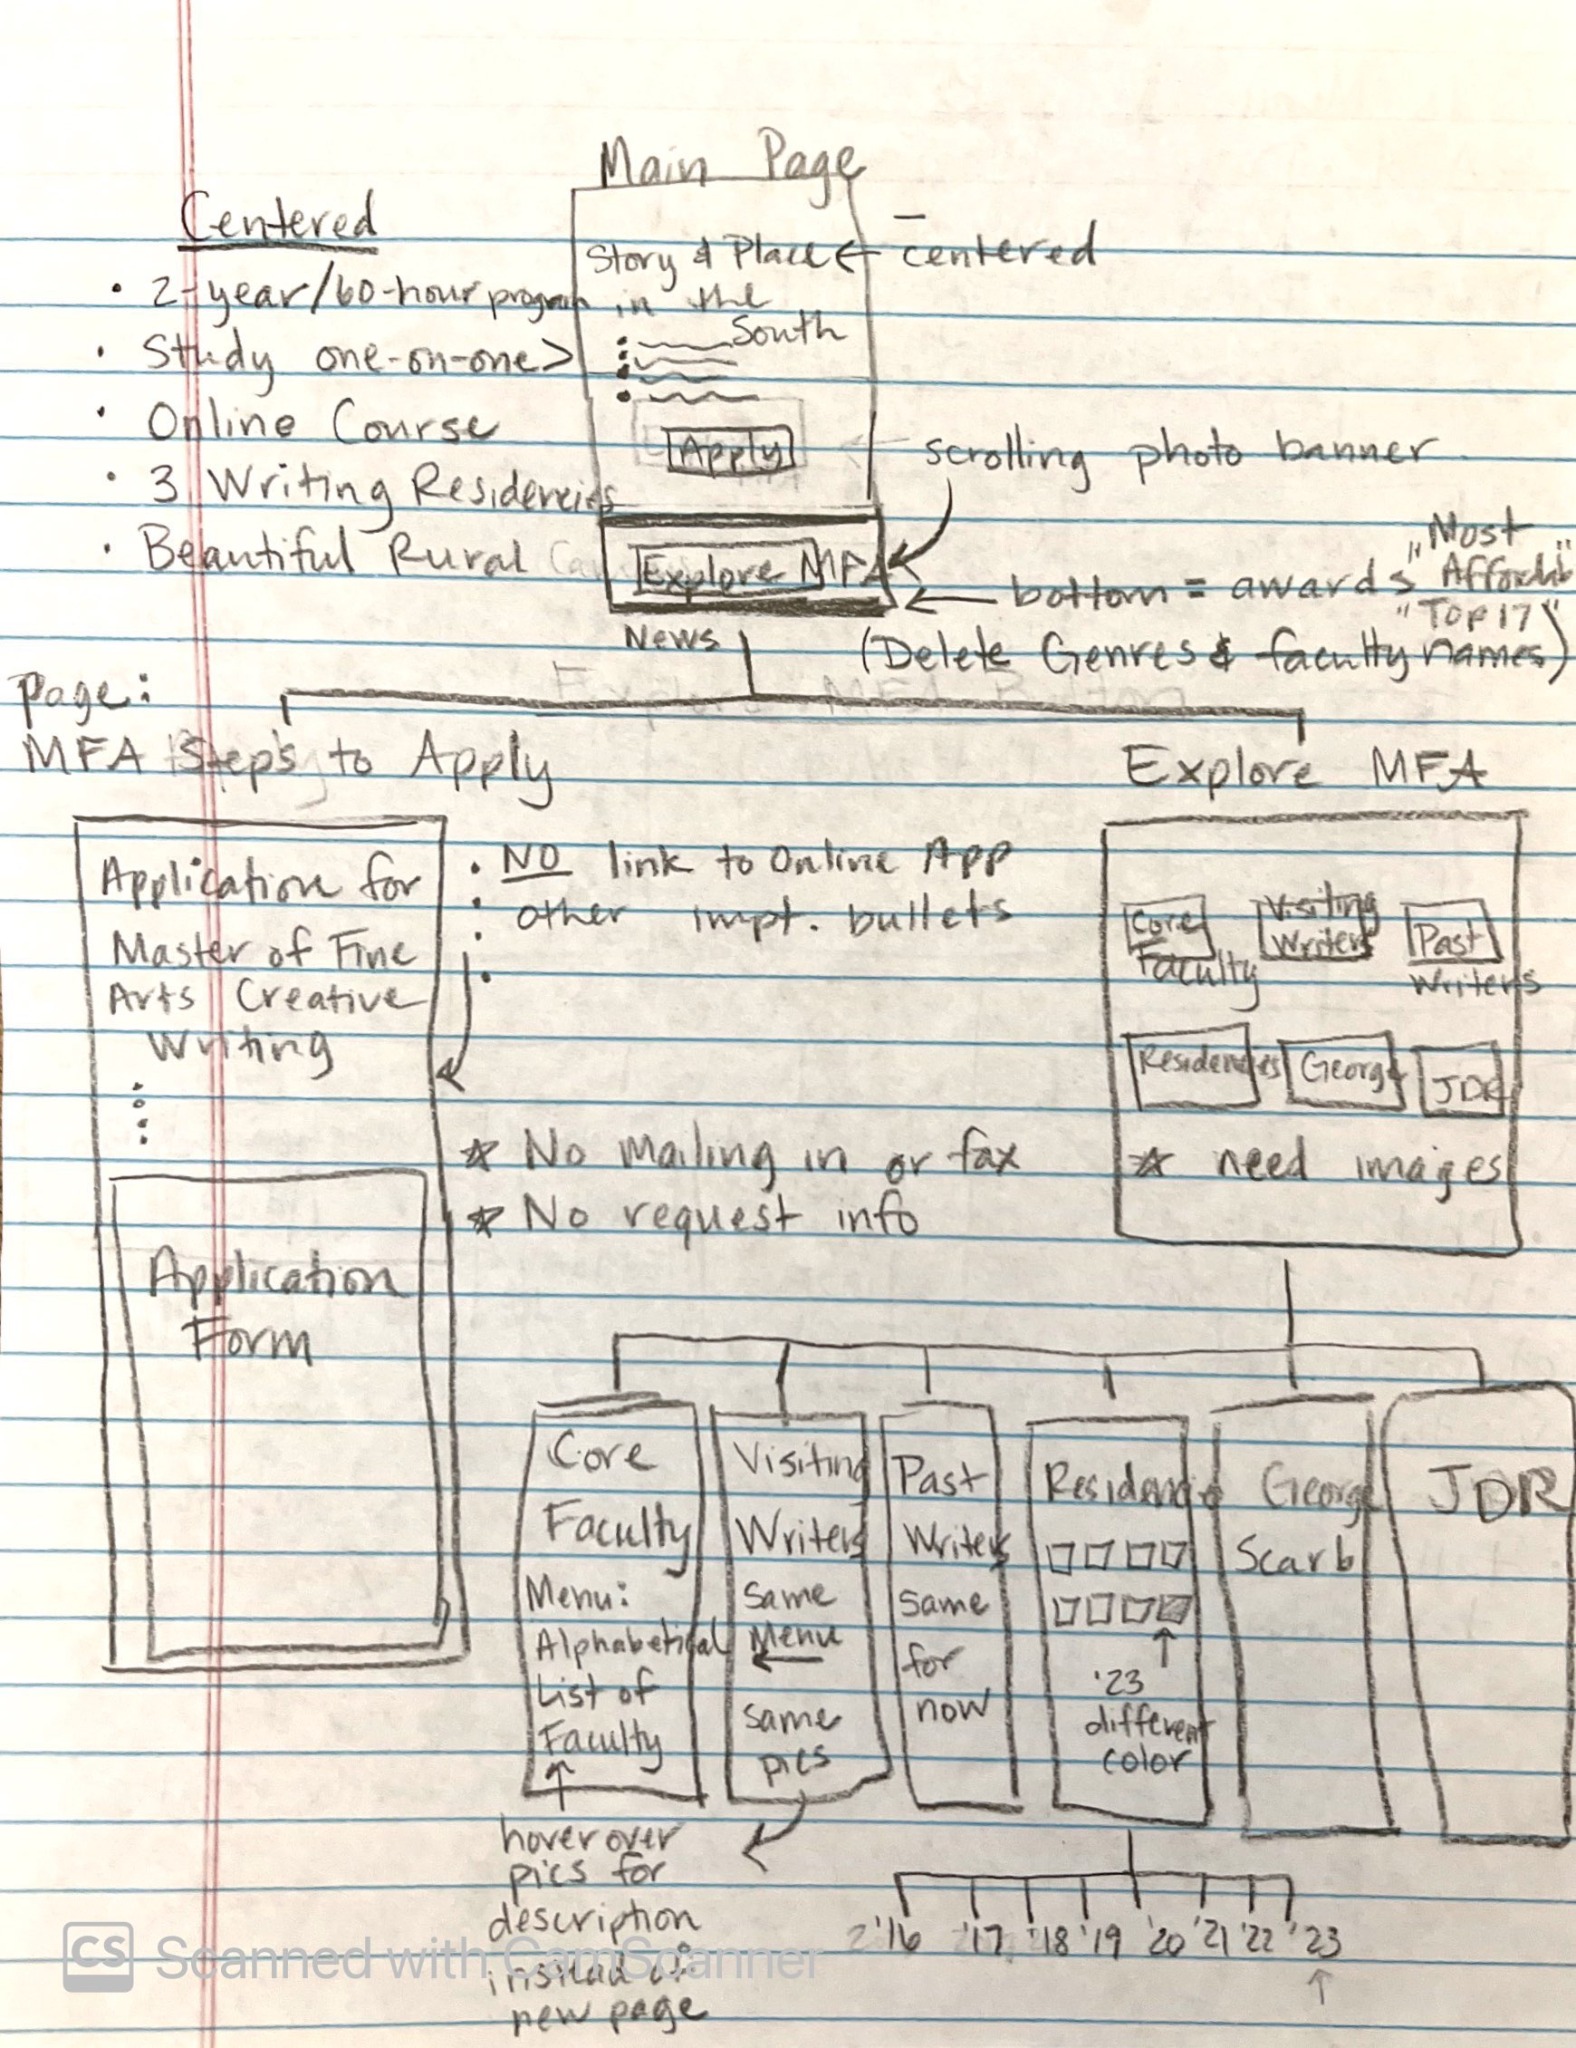 Main Page
Centered
Story & Place ← centered
in the
South
• 2-year/60-hour program
• Study one-on-one >
• Online Course
• 3 Writing Residencies
• Beautiful Rural
Apply
scrolling photo banner
Explore MFA
bottom = awards "Most
Affordable"
"Top 17"
News
(Delete Genres & faculty names)
Page:
MFA Steps to Apply
Explore MFA
Application for
Master of Fine
Arts Creative
Writing
• NO link to Online App
• other impt. bullets
Core
Faculty
Visiting
Writers
Past
Writers
Residencies
George
JDR
* need images
* No mailing in or fax
* No request info
Application
Form
Core
Faculty
Menu:
Alphabetical
List of
Faculty
↑
hover over
pics for
description
instead of
new page
Visiting
Writers
same
Menu
←
same
pics
Past
Writers
same
for
now
Residencie
↑
'23
different
color
George
Scarb
JDR
'16 '17 '18 '19 '20 '21 '22 '23
↑
CS Scanned with CamScanner